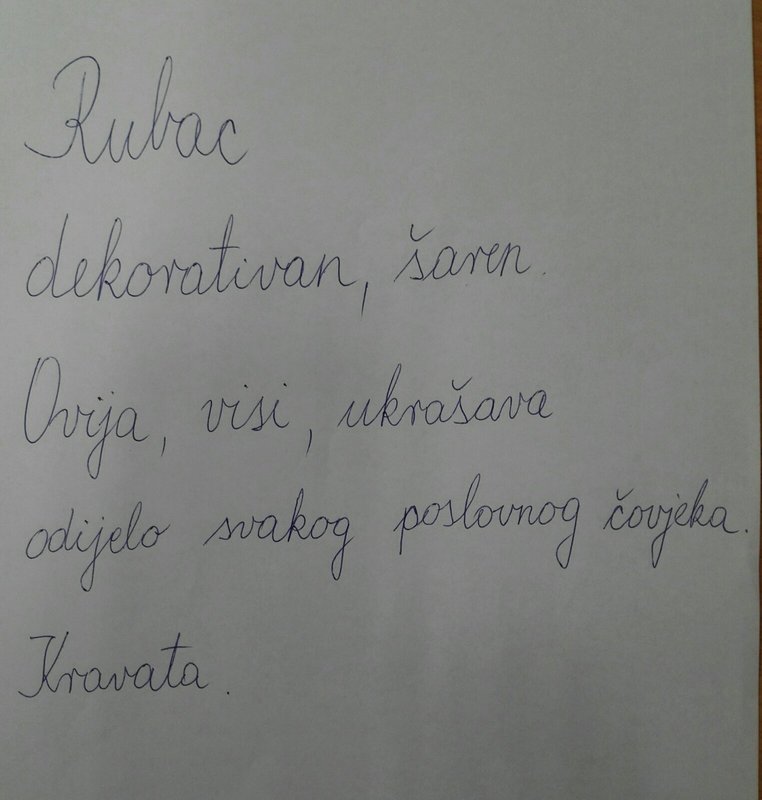 Rubac
dekorativan, šaren.
Ovija, visi, ukrašava
odijelo svakog poslovnog čovjeka.
Kravata.